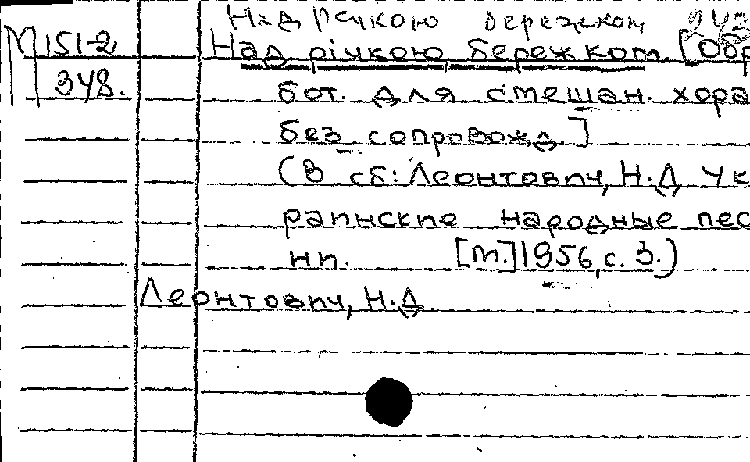 Над речкою бережком
М151-2 Над річкою бережком [Обра
348. бот. для смешан. хора
без сопровожд]
(В сб: Леонтович, Н.Д Ук
раинские народные пес
ни. [М.] 1956, с. 3.)
Леонтович, Н.Д